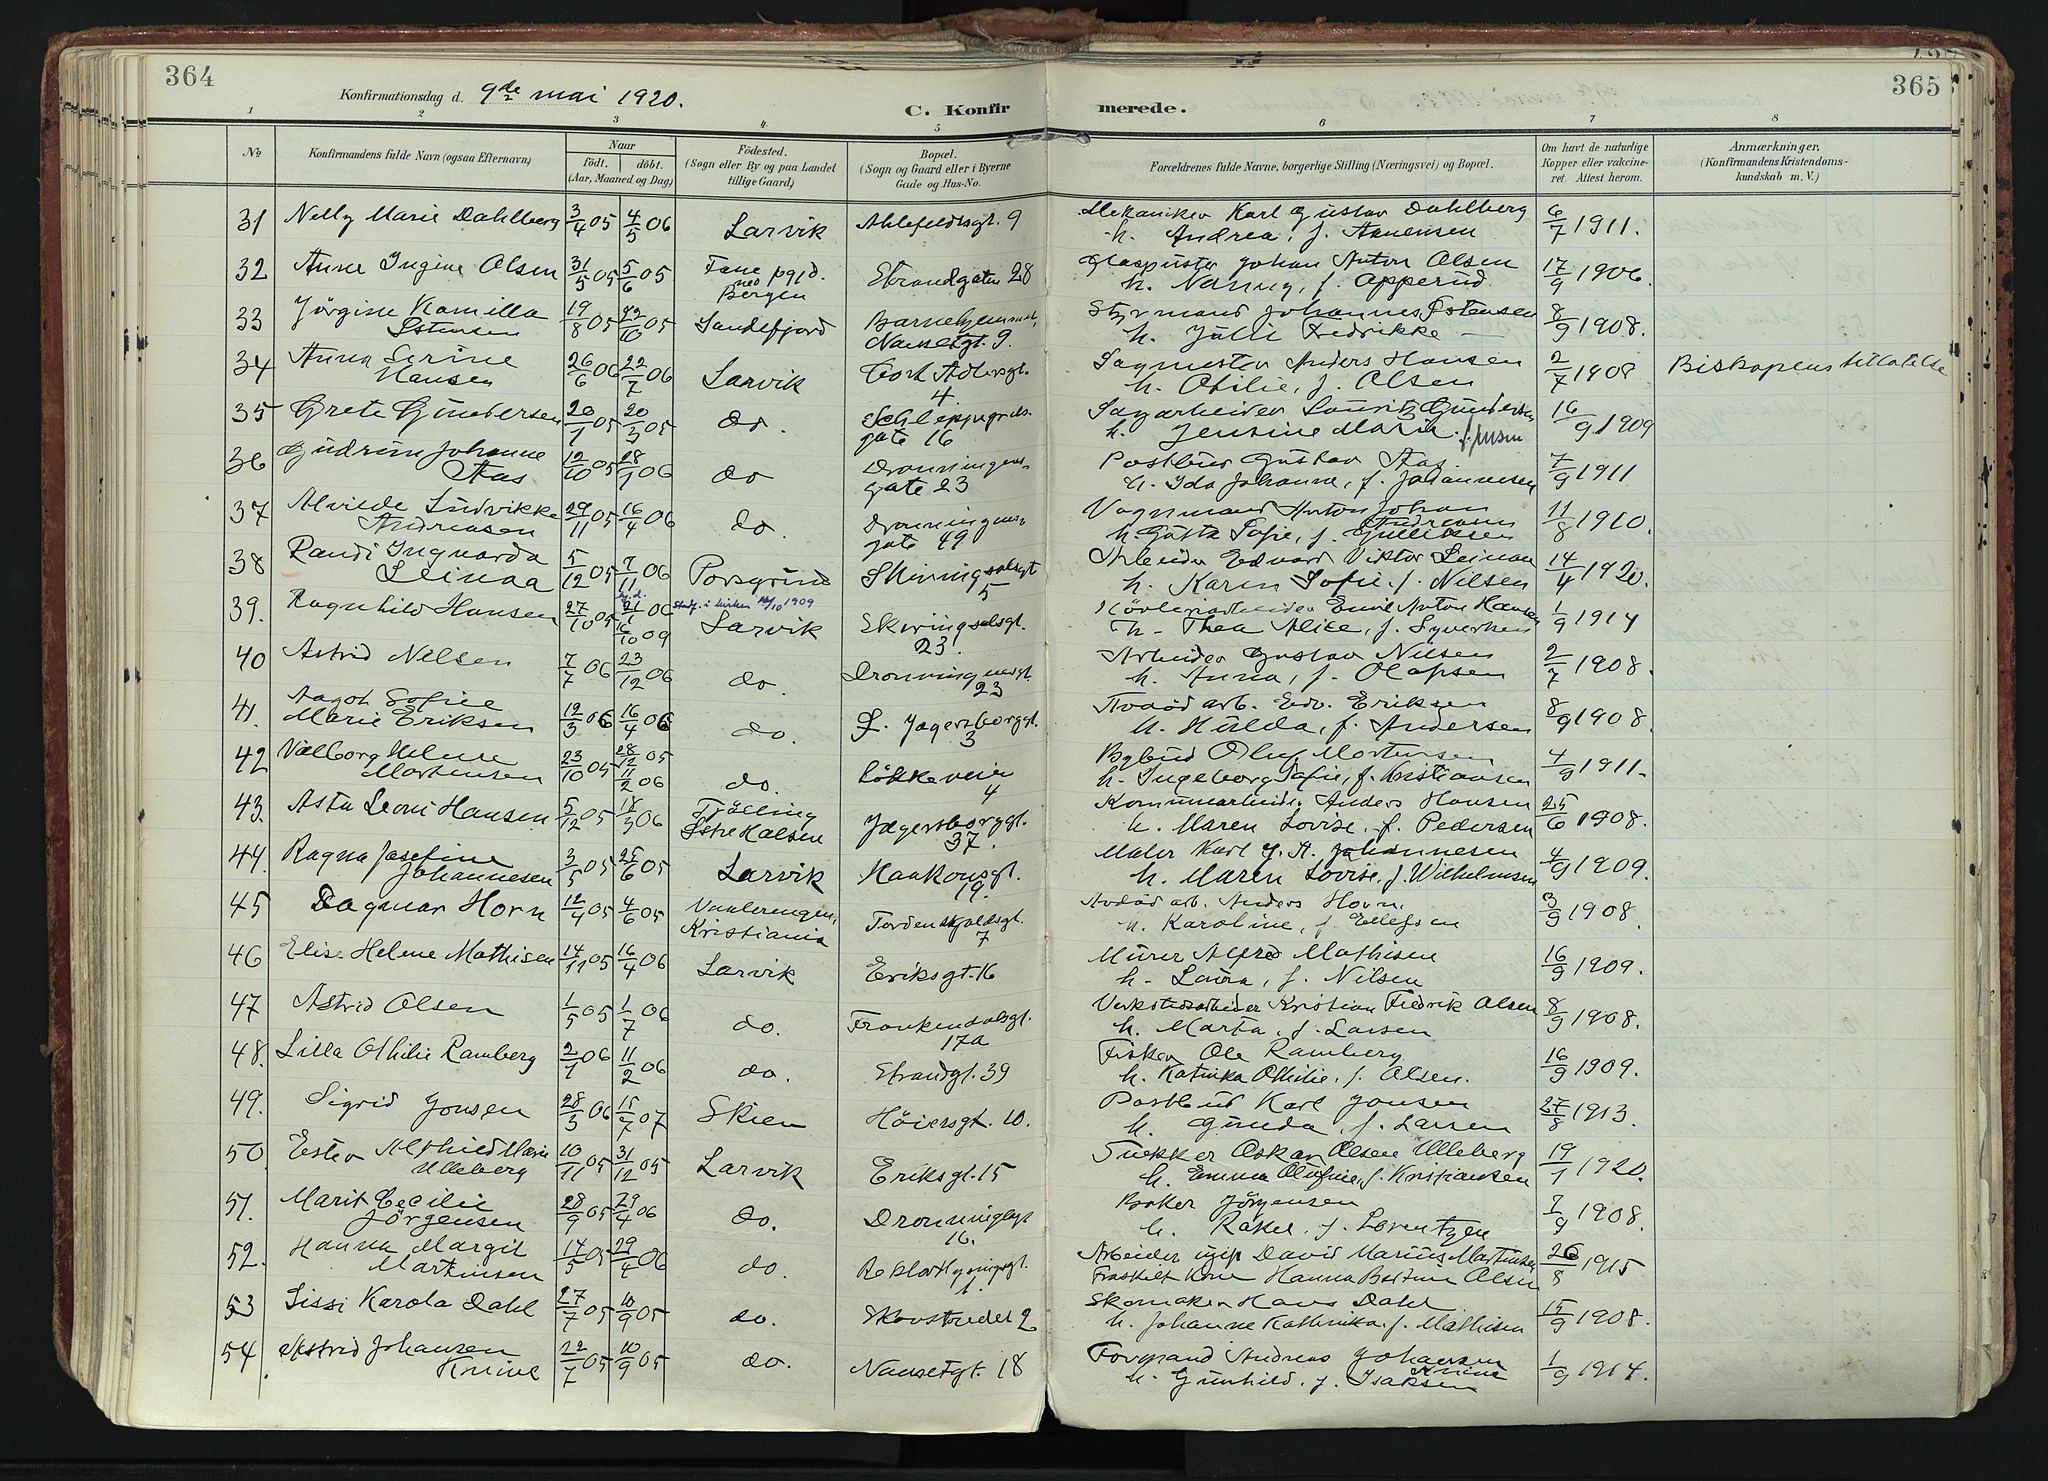 364
365
Konfirmationsdag d. 9de mai 1920.
C. Konfirmerede.
1 2 3 4 5 6 7 8
No
Konfirmandens fulde Navn (ogsaa Efternavn)
Naar
födt. döbt.
(Aar, Maaned og Dag)
Födested.
(Sogn eller By og paa Landet
tillige Gaard)
Bopæl.
(Sogn og Gaard eller i Byerne
Gade og Hus-No.
Forældrenes fulde Navne, borgerlige Stilling (Næringsvei) og Bopæl.
Om havt de naturlige
Kopper eller vakcine-
ret. Attest herom.
Anmærkninger.
(Konfirmandens Kristendoms-
kundskab m. V.)
31 Nelly Marie Dahlberg 3/4 05 4/5 06 Larvik Ahlefeldtsgt. 9 Mekaniker Karl Gustav Dahlberg 6/7 1911.
h. Andrea, f. Arnensen
32 Anne Ingine Olsen 31/5 05 5/6 05 Fane pgjd. Strandgaten 28 Glaspuster Johan Anton Olsen 17/9 1906.
ved Bergen h. Nanny, f. Apperud
33 Jörgine Kamilla 19/8 05 22/10 05 Sandefjord Barnehjemmet, Styrmand Johannes Östensen 8/9 1908.
Östensen Nansetgt. 9. h. Julli Fredrikke —
34 Anna Serine 26/6 06 22/7 06 Larvik Cort Adlersgt. Sagmester Anders Hansen 2/7 1908 Biskopens tillatelse
Hansen 4. h. Otilie, f. Olsen
35 Grete Gundersen 20/1 05 20/3 05 do. Schleppegrels- Sagarbeider Lauritz Gundersen 16/9 1909
gate 16 h. Jensine Maria f. Jensen
36 Gudrun Johanne 12/10 05 28/1 06 do Dronningens- Postbud Gustav Aas 7/9 1911
Aas gate 23 h. Ida Johanne, f. Johannesen
37 Alvilde Ludvikke 29/11 05 16/4 06 do. Dronningens- Vognmand Anton Johan 11/8 1910.
Andreasen gate 49 Andreasen
h. Gusta Sofie, f. Gulliksen
38 Randi Ingvarda 5/12 05 7/11 06 Porsgrund Skiringsalsgt Arbeider Edvard Viktor Leinaa 14/4 1920.
Leinaa 5 h. Karen Sofie, f. Nilsen
39. Ragnhild Hansen 27/10 05 hj.d. 21/1 06 stadf. i kirken 10/10 1909 Skiringsalsgt. Høvleriarbeider Emil Anton Hansen 1/9 1914
10/10 09 Larvik 23. h. Thea Alise, f. Syvertsen
40 Astrid Nilsen 7/7 06 23/12 06 do. Dronningensgt. Arbeider Gustav Nilsen 2/7 1908.
23 h. Anna, f. Olafsen
41. Aagot Sofie 12/3 06 16/4 06 do. F. Jagersborggt. Avdöd arb. Edv. Eriksen 8/9 1908.
Marie Eriksen 3 h. Hulda, f. Andersen
42 Valborg Helene 23/10 05 28/12 05 do. Løkkeveien Bybud Oluf Mortensen 4/9 1911.
Mortensen 11/2 06 4 h. Ingeborg Sofie, f. Kristiansen
43. Asta Leoni Hansen 5/12 05 18/3 06 Tjölling Jegersborggt. Kommunearbeider Anders Hansen 25/6 1908.
Östre Halsen 37. h. Maren Lovise, f. Pedersen
44. Ragna Josefine 3/5 05 25/6 05 Larvik Haakonsgt. Maler Karl J. A. Johannesen 4/9 1909.
Johannesen 19. h. Maren Lovise, f. Wilhelmsen
45 Dagmar Horn 12/4 05 4/6 05 Vaalerengen, Tordenskjoldsgt. Avdöd arb. Anders Horn. 3/9 1908.
Kristiania 7 h. Karoline, f. Ellefsen
46 Elise Helene Mathisen 14/11 05 16/4 06 Larvik Eriksgt. 16 Murer Alfred Mathisen 16/9 1909.
h. Laura, f. Nilsen
47 Astrid Olsen 1/5 05 1/7 06 do. Frankendalsgt. Verkstedsarbeider Kristian Fredrik Olsen 8/9 1908.
17a h. Marta, f. Larsen
48. Lilla Othilie Ramberg 2/1 06 11/2 06 do. Strandgt. 39 Fisker Ole Ramberg 16/9 1909.
h. Katinka Othilie, f. Olsen.
49. Sigrid Jonsen 28/3 06 15/7 07 Skien Høiersgt. 10. Postbud Karl Jonsen 27/8 1913.
h. Gunda, f. Larsen
50. Ester Alfhild Marie 10/11 05 31/12 05 Larvik Eriksgt. 15 Trækker Oskar Olsen Ulleberg 19/1 1920.
Ulleberg h. Emma Olufine, f. Kristiansen
51. Marit Cecilie 28/9 05 29/4 06 do. Dronninggt Baker Jörgensen 7/9 1908.
Jörgensen 16. h. Rakel, f. Lorentzen
52. Hanna Margit 14/5 05 29/4 06 do. Rektor Hysingsgt. Arbeider ugip David Marius Martinsen 26/8 1915
Martinsen 1. Fraskilt kone Hanna Bertine Olsen
53 Sissi Karola Dahl 27/7 05 10/9 05 do. Skovstredet 2 Skomaker Hans Dahl 15/9 1908.
h. Johanne Kathinka, f. Mathisen
54 Astrid Johansen 22/7 05 10/9 05 do. Nansetgt. 18 Formand Andreas Johansen 1/9 1914.
Knive Knive
h. Gunhild, f. Isaksen